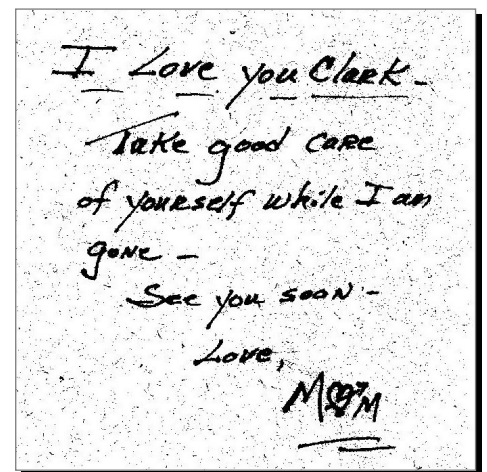 I Love you Clark -
Take good care
of yourself while I am
gone -
See you soon -
Love,
MOM